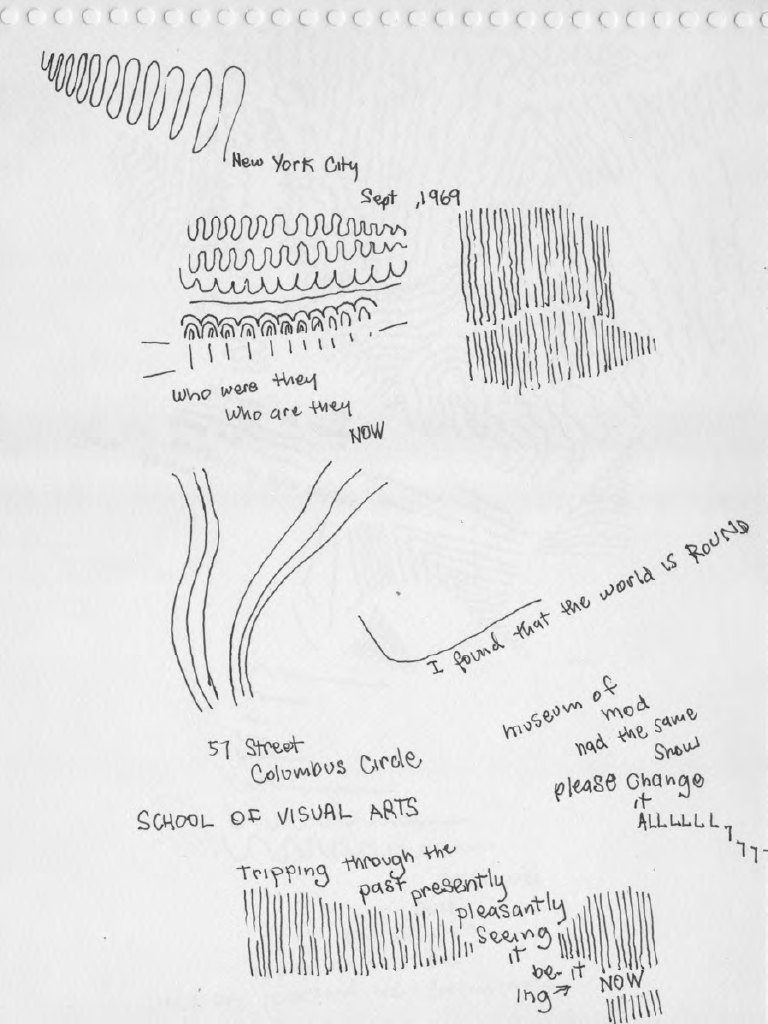 New York City
Sept ,1969
Who were they
Who are they
NOW
I found that the world is ROUND
museum of
mod
had the same
show
please change
it
ALLLLLL
57 Street
Columbus Circle
SCHOOL OF VISUAL ARTS
Tripping through the
past presently
pleasantly
Seeing
it
be it
ing→ NOW